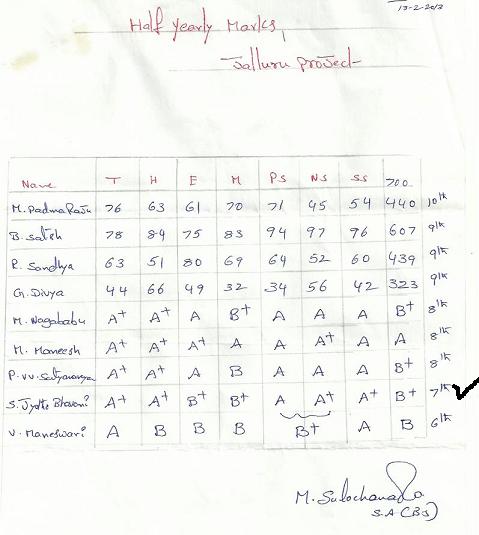 13-2-2013
Half yearly Marks,
Jalluru project
Name T H E M PS NS SS 700
M. Padma Raju 76 63 61 70 71 45 54 440 10th
B. Satish 78 84 75 83 94 97 96 607 9th
R. Sandhya 63 51 80 69 64 52 60 439 9th
G. Divya 44 66 49 32 34 56 42 323 9th
M. Nagababu A+ A+ A B+ A A A B+ 8th
M. Maneesh A+ A+ A A A A+ A A 8th
P. VV. Satyanarayana A+ A+ A B A A A B+ 8th
S. Jyothi Bhavani A+ A+ B+ B+ A A+ A+ B+ 7th
V. Maneswari A B B B B+ A B 6th
M. Sulochana
S.A (BS)